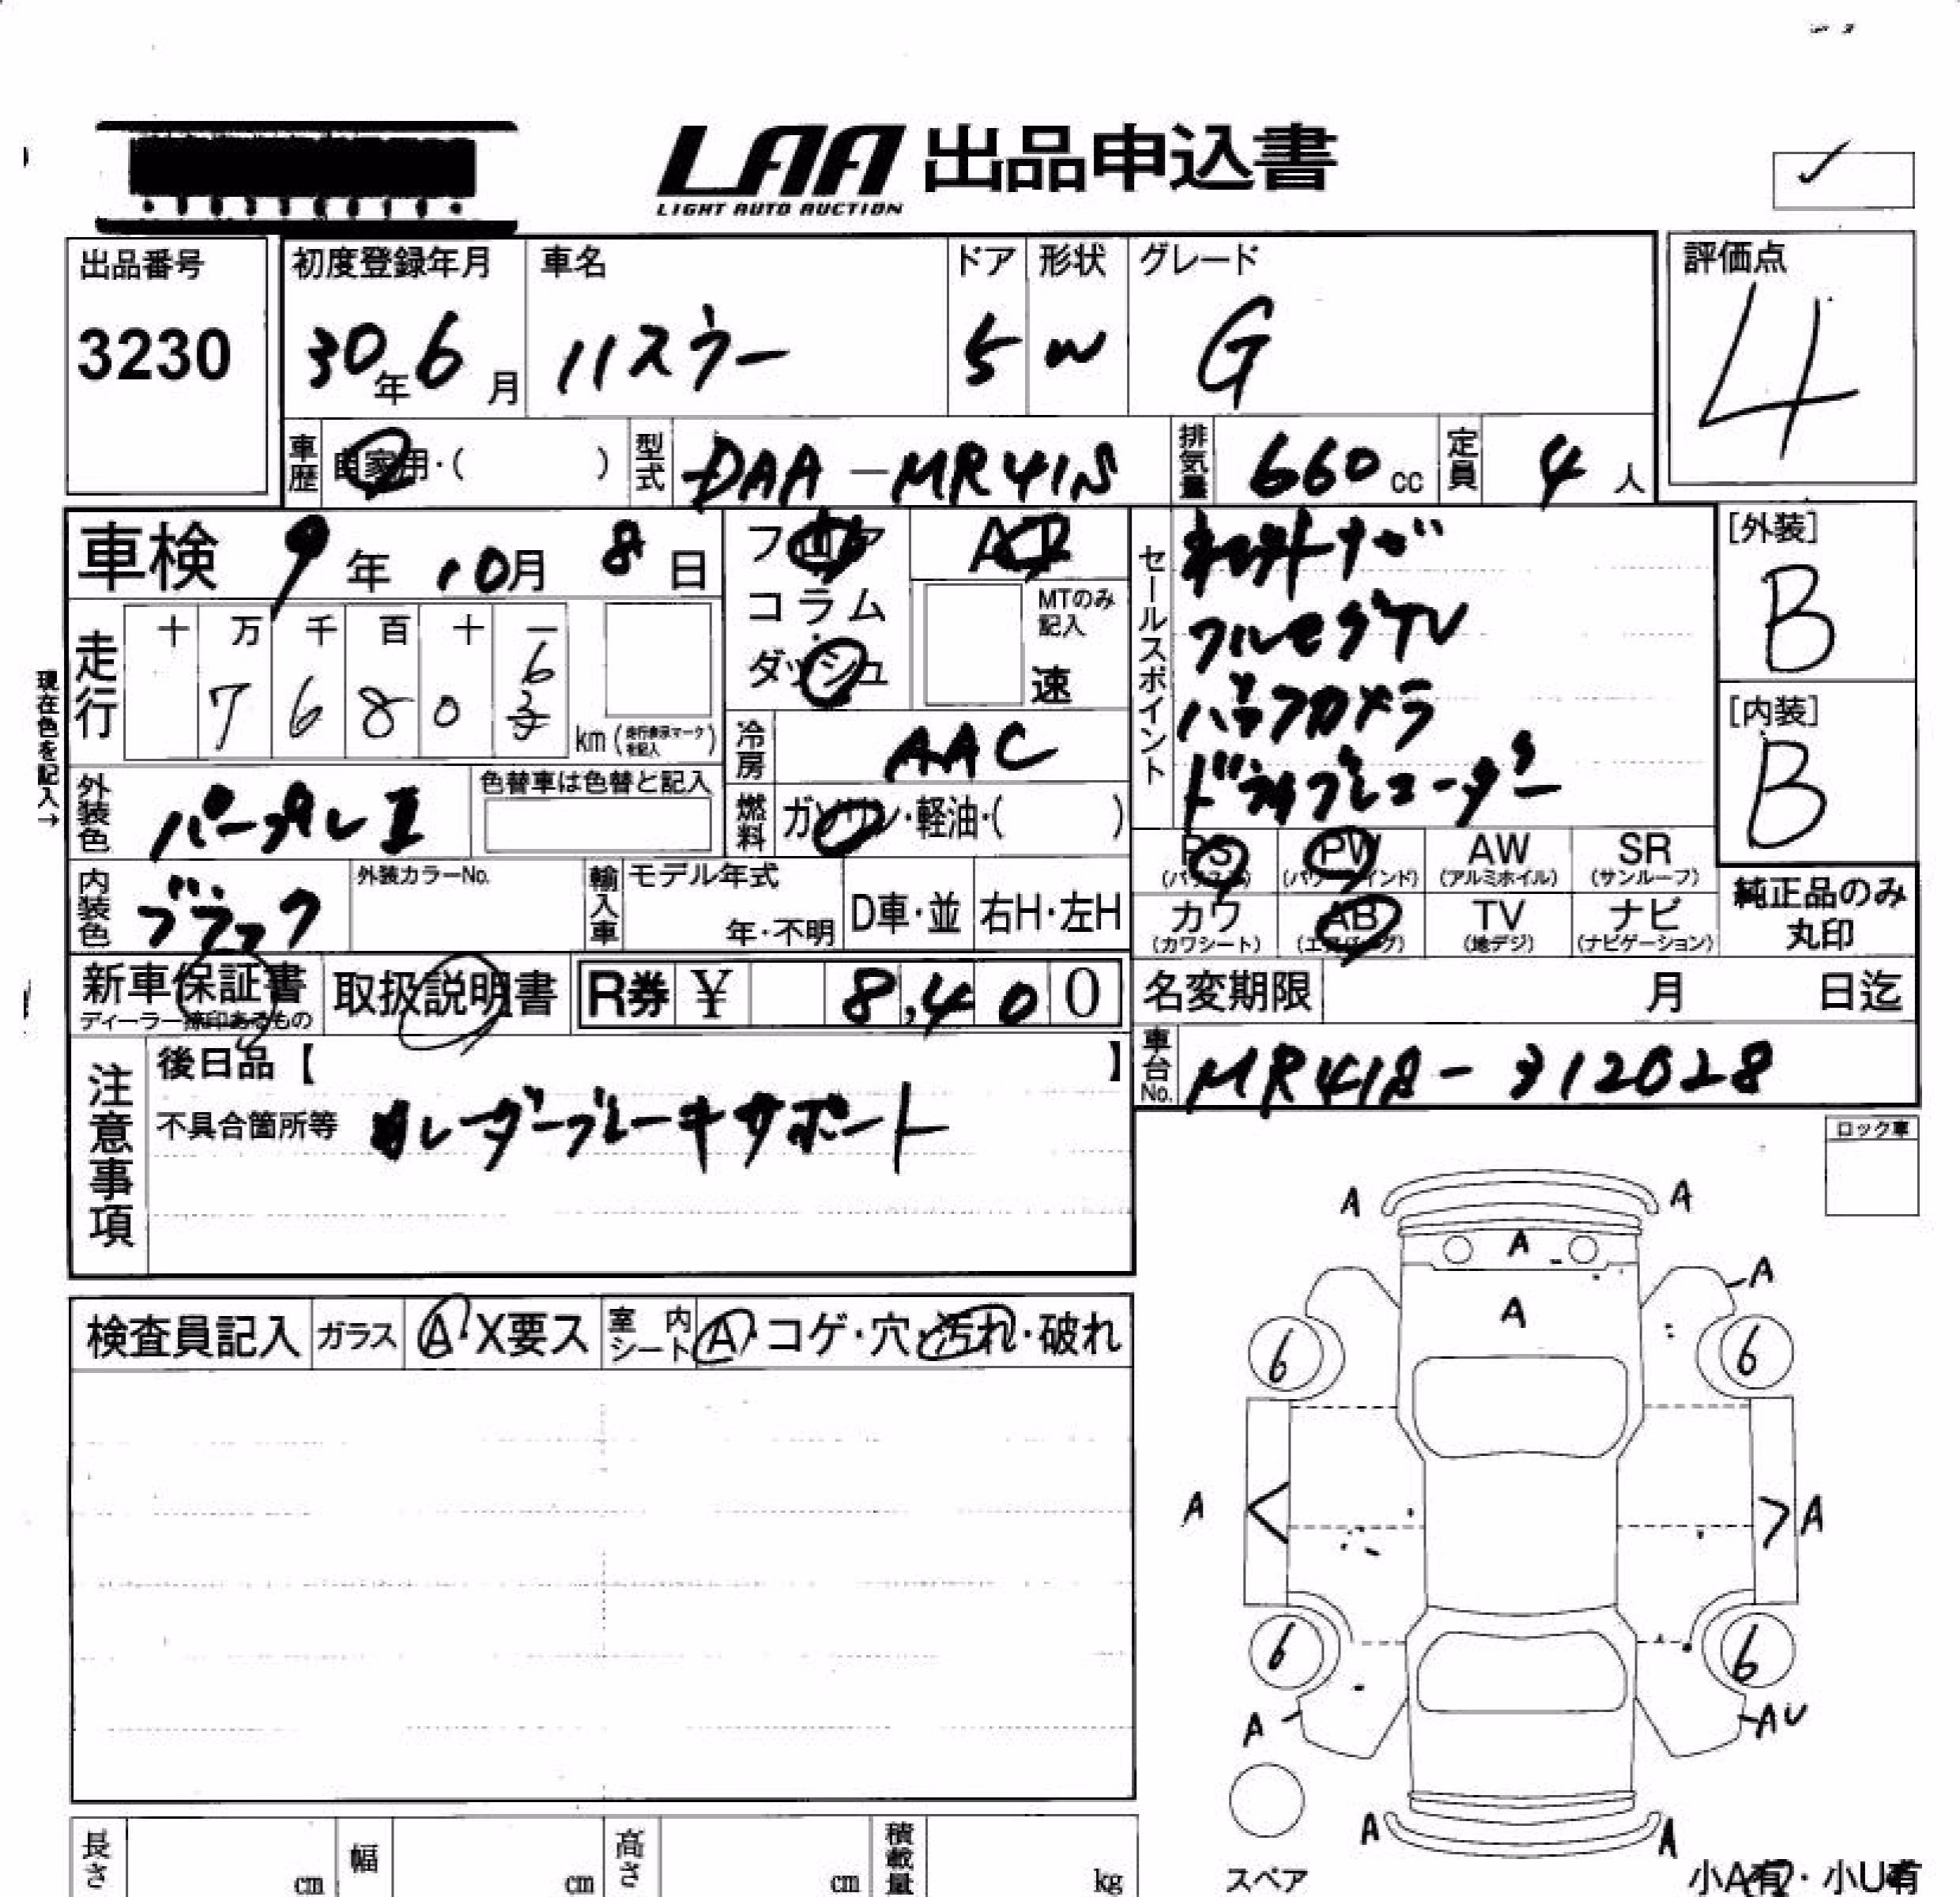 LAA 出品申込書
LIGHT AUTO AUCTION
出品番号
3230
初度登録年月
30年6月
車名
ハスラー
ドア
5
形状
W
グレード
G
評価点
4
車歴
自家用・( )
型式
DAA-MR41S
排気量
660cc
定員
4人
車検 9年10月8日
フロア
コラム
ダッシュ
AT
MTのみ記入
速
セールスポイント
ナビ
フルセグTV
バックカメラ
ドライブレコーダー
[外装]
B
[内装]
B
現在色を記入→
走行
十 万 千 百 十 一
7 6 8 0 6
km(走行表示マークを記入)
冷房
AAC
外装色
パープルⅡ
色替車は色替と記入
燃料
ガソリン・軽油・( )
PS
(パワステ)
PW
(パワーウインド)
AW
(アルミホイル)
SR
(サンルーフ)
カワ
(カワシート)
AB
(エアバッグ)
TV
(地デジ)
ナビ
(ナビゲーション)
純正品のみ
丸印
内装色
ブラック
外装カラーNo.
輸入車
モデル年式
年・不明
D車・並
右H・左H
新車保証書
ディーラー捺印あるもの
取扱説明書
R券 ¥ 8,400
名変期限 月 日迄
車台No.
MR41S-312028
注意事項
後日品【 】
不具合箇所等
レーダーブレーキサポート
ロック車
検査員記入
ガラス
A・X要ス
室内シート
A・コゲ・穴・汚れ・破れ
A A
A
A
A
6 6
A A
6 6
A AU
A A
スペア
小A有・小U有
長さ cm
幅 cm
高さ cm
積載量 kg